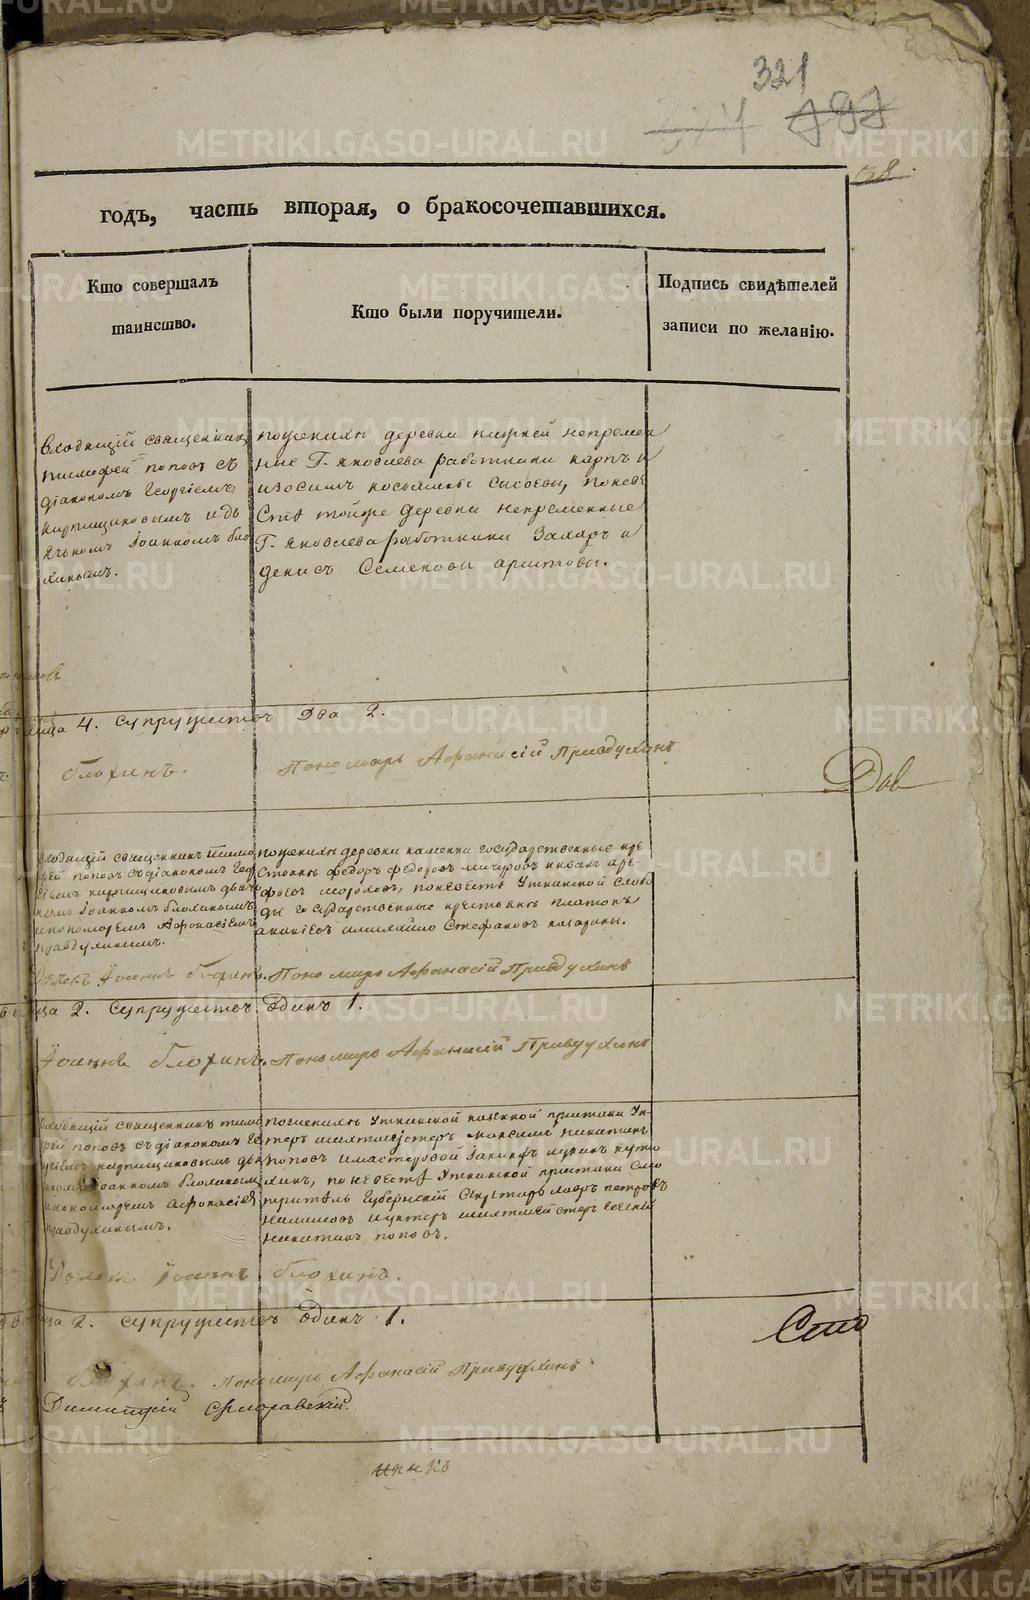 321
797
38
годъ, часть вторая, о бракосочетавшихся.
Кто совершалъ
таинство.
Кто были поручители.
Подпись свидѣтелей
записи по желанію.
Входящій священникъ
тимофей поповъ съ
діакономъ Георгіемъ
Кирпищиковымъ и дь
ячкомъ Іоанномъ бло
хинымъ.
по женихѣ деревни нижней непремен
ные Г. Яковлева работники карпъ и
изосимъ косьмины сысоевы, по неве
стѣ тойже деревни непременные
Г. Яковлева работники Захаръ и
денисъ Семеновы аристовы.
лица 4. супружествъ два 2.
блохинъ.
Пономарь Афанасій Правдухинъ
Дов
входящій священникъ тимо
фей поповъ съ діакономъ Гео
ргіемъ кирпищиковымъ дьяч
комъ Іоанномъ блохинымъ
и пономаремъ Афонасіемъ
правдухинымъ.
по женихѣ деревни каменки государственные кре
стьяне федоръ федоровъ мичуровъ и иванъ аре
фьевъ мороловъ, по невестѣ Уткинской слобо
ды государственные крестьяне платонъ
ананіевъ и михайло Стефановъ казарины.
Дьячекъ Іоаннъ блохинъ. Пономарь Афанасій Правдухинъ
лица 2. супружество Одинъ 1.
Іоаннъ блохинъ. Пономарь Афанасій Правдухинъ
входящій священникъ тимо
фей поповъ съ діакономъ Ге
ргіемъ кирпищиковымъ дья
комъ Іоанномъ блохинымъ
и пономаремъ Афонасіемъ
правдухинымъ.
по женихѣ Уткинской казенной пристани Ун
теръ шихтмейстеръ Максимъ никитинъ
поповъ и мастеровой
по невестѣ Уткинской пристани смо
тритель Губернскій Секретарь лавръ петровъ
и унтеръ шихтмейстеръ евгеній
никитинъ поповъ.
Дьячекъ Іоаннъ блохинъ.
лица 2. супружество Одинъ 1.
блохинъ. Пономарь Афанасій Правдухинъ
Димитрій
METRIKI.GASO-URAL.RU